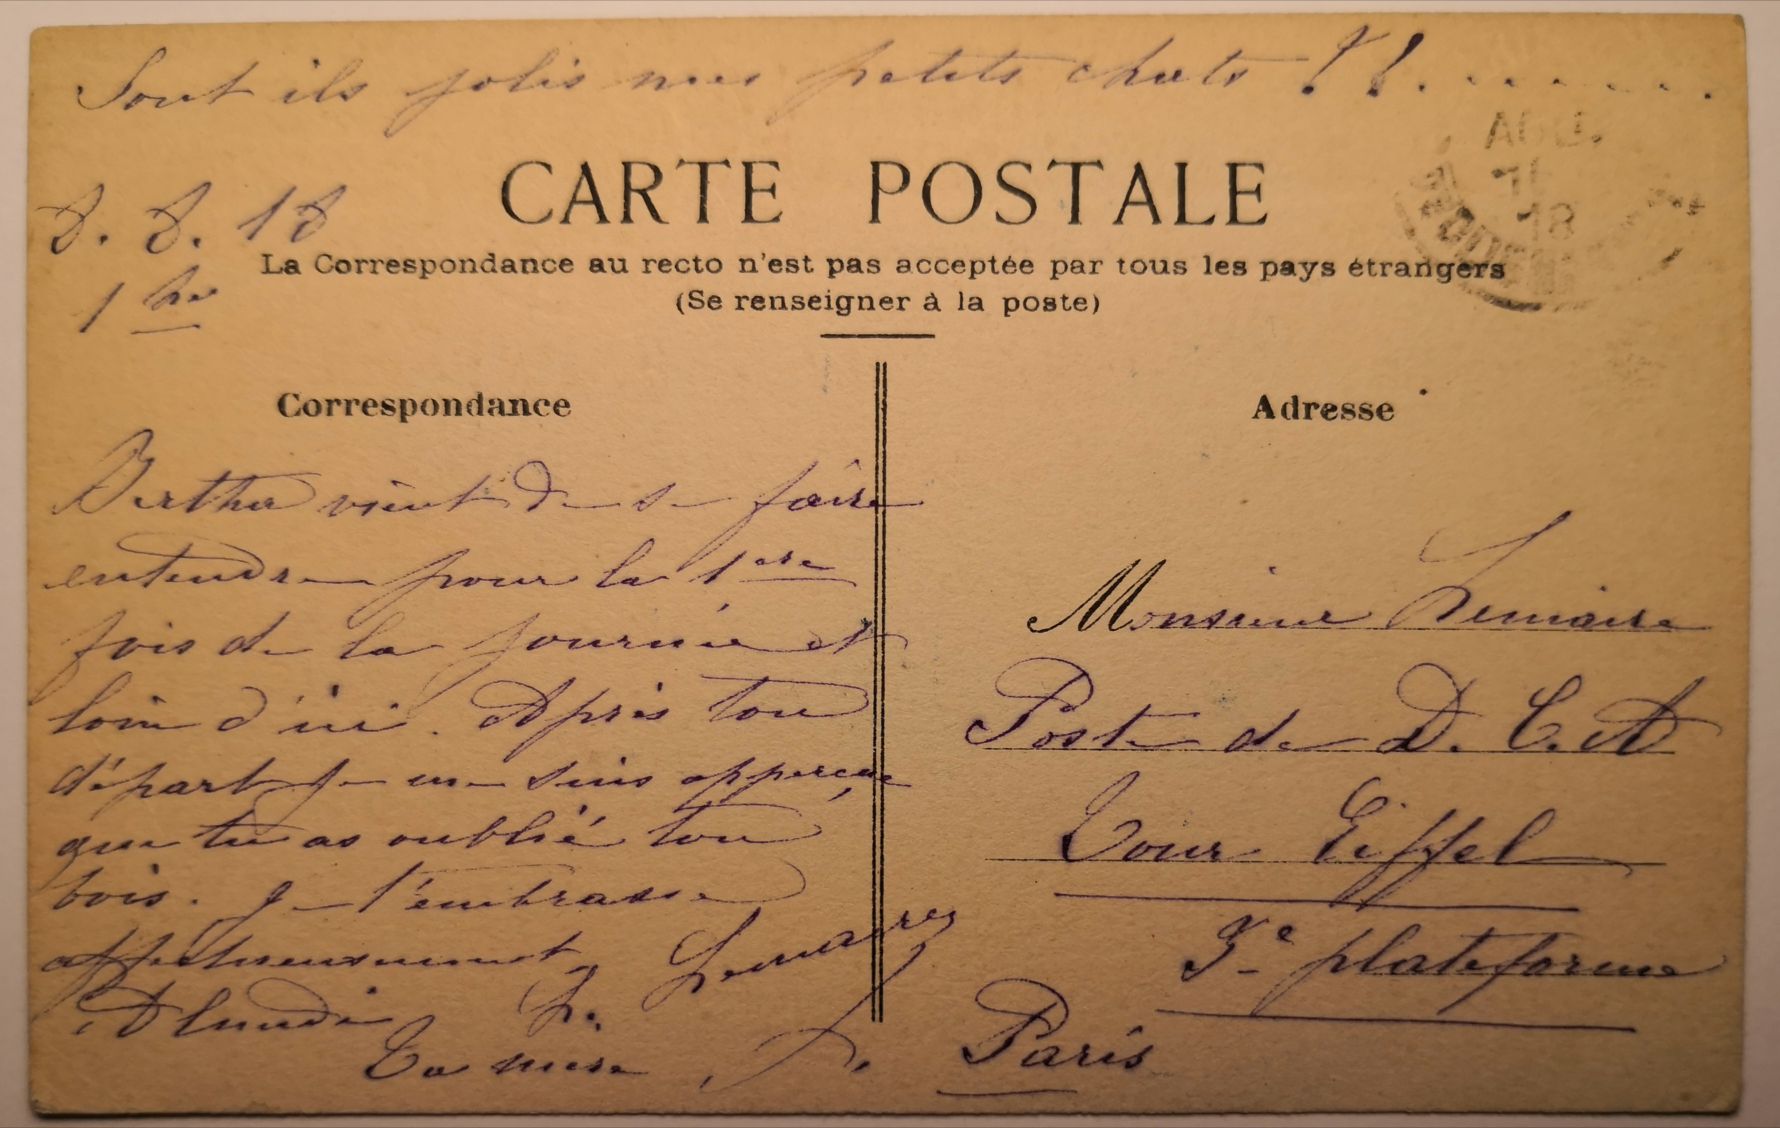 Sont ils jolis mes petits chats !!.......
AOU.
18
CARTE POSTALE
8. 8. 18
La Correspondance au recto n'est pas acceptée par tous les pays étrangers
1 he
(Se renseigner à la poste)
Correspondance
Bertha vient de se faire
entendre pour la 1ere
fois de la journée et
loin d'ici. Après ton
départ je me suis apperçue
que tu as oublié ton
bois. Je t'embrasse
affectueusement
A lundi L. Lemaire
Ta mère
Adresse
Monsieur Lemaire
Poste de D. C. A
Tour Eiffel
3e plateforme
Paris